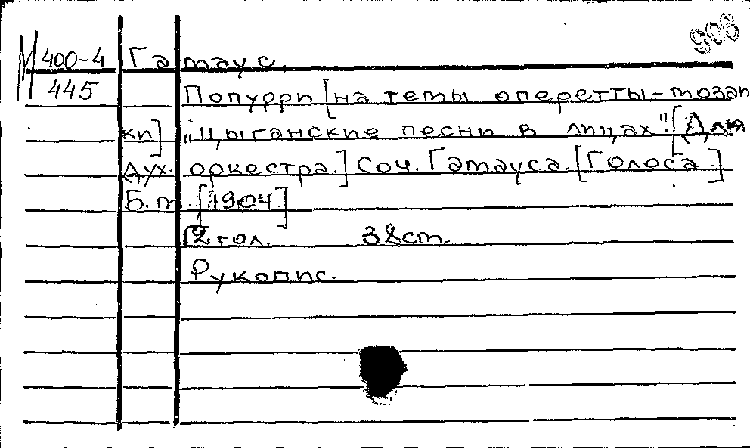 908
М 400-4 Гатаус.
445 Попурри [на темы оперетты-мозаи
ки] "Цыганские песни в лицах". [Для
дух. оркестра.] Соч. Гатауса. [Голоса.]
Б.м. [1904]
12 гол. 38 ст.
Рукопис.